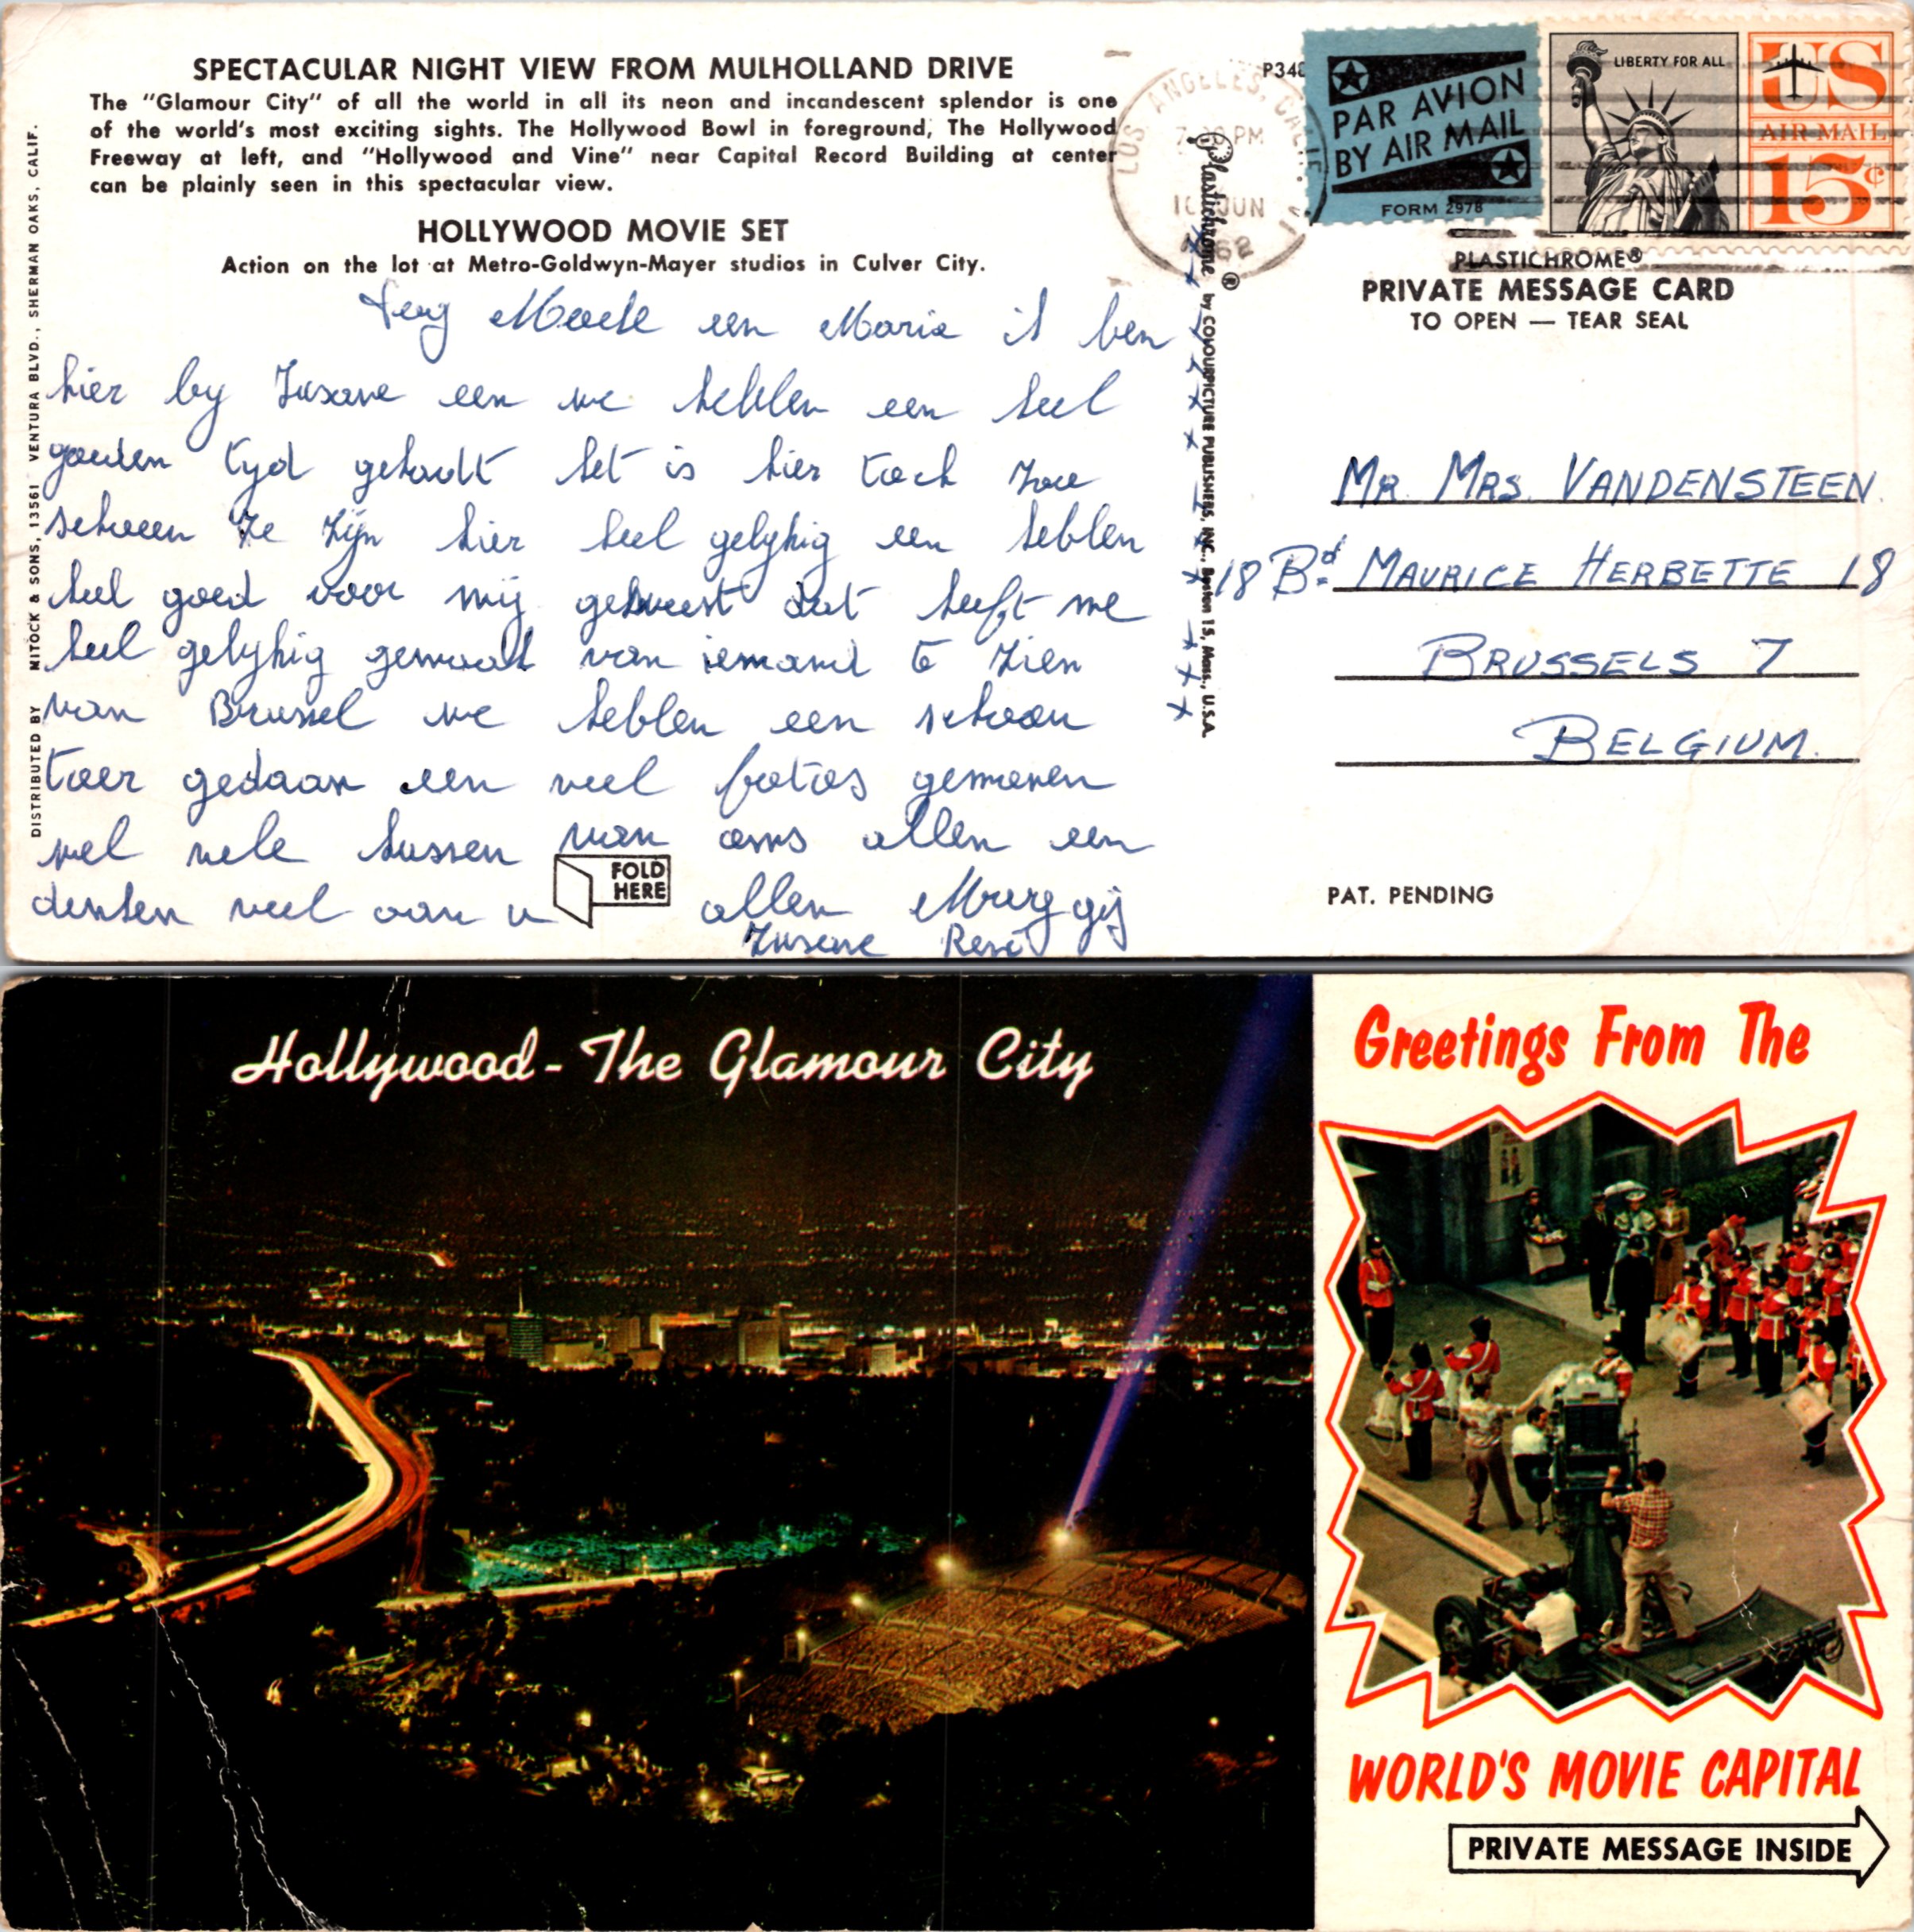 SPECTACULAR NIGHT VIEW FROM MULHOLLAND DRIVE
The "Glamour City" of all the world in all its neon and incandescent splendor is one
of the world's most exciting sights. The Hollywood Bowl in foreground, The Hollywood
Freeway at left, and "Hollywood and Vine" near Capital Record Building at center
can be plainly seen in this spectacular view.
HOLLYWOOD MOVIE SET
Action on the lot at Metro-Goldwyn-Mayer studios in Culver City.
een Maria ik ben
hier by Zusane een we hebben een heel
gouden tyd gehadt het is hier toch zoo
schoon Ze Zijn hier heel gelykig een hebben
heel goed voor mij geweest dat heeft me
heel gelykig gemaakt van iemand te zien
van Brussel we hebben een schoon
toer gedaan een veel fotos genomen
wel vele kussen van oms allen een
denken veel aan u allen
Zusane René
DISTRIBUTED BY MITOCK & SONS, 13561 VENTURA BLVD., SHERMAN OAKS, CALIF.
Plastichrome ® by COLOURPICTURE PUBLISHERS, INC., Boston 15, Mass., U.S.A.
FOLD
HERE
P348
LOS ANGELES, CALIF.
PM
JUN
1962
PAR AVION
BY AIR MAIL
FORM 2978
LIBERTY FOR ALL
US
AIR MAIL
15¢
PLASTICHROME®
PRIVATE MESSAGE CARD
TO OPEN — TEAR SEAL
MR MRS VANDENSTEEN
18 Bd MAURICE HERBETTE 18
BRUSSELS 7
BELGIUM.
PAT. PENDING
Hollywood - The Glamour City
Greetings From The
WORLD'S MOVIE CAPITAL
PRIVATE MESSAGE INSIDE